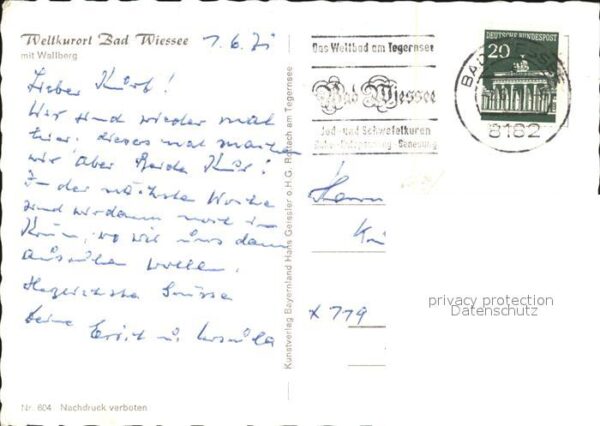 Weltkurort Bad Wiessee
mit Wallberg
1.6.71
Lieber Kurt!
Wir sind wieder mal
hier, dieses mal machen
wir aber Beide Kur!
In der nächsten Woche
sind wir dann noch in
wo wir uns dann
ausruhen wollen.
Herzlichste Grüsse
und Ursula
Nr. 604 Nachdruck verboten
Kunstverlag Bayernland Hans Geissler o.H.G. Rottach am Tegernsee
Das Weltbad am Tegernsee
Bad Wiessee
Jod- und Schwefelkuren
Ruhe-Entspannung-Genesung
DEUTSCHE BUNDESPOST
20
BAD WIESSEE
8182
Herrn
779
privacy protection
Datenschutz